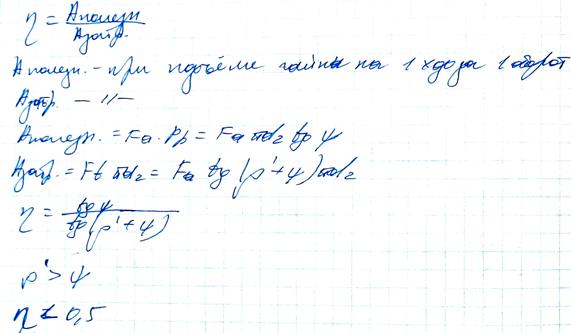 η = Aполезн / Aзатр.
Aполезн. - при подъёме гайки на 1 ход за 1 оборот
Aзатр. — //—
Aполезн. = Fa · Pp = Fa πd₂ tg ψ
Aзатр. = Ft πd₂ = Fa tg (ρ' + ψ) πd₂
η = tg ψ / tg (ρ' + ψ)
ρ' > ψ
η < 0,5